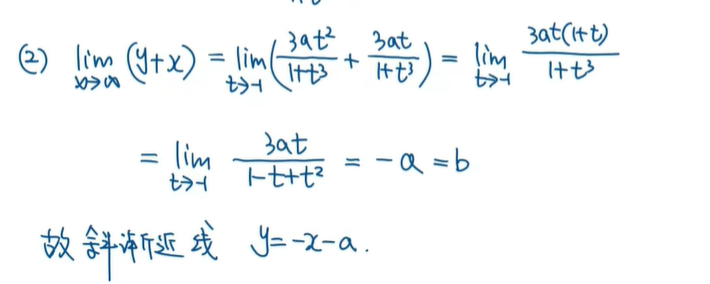 ② lim x→∞ (y+x) = lim t→-1 (3at²/1+t³ + 3at/1+t³) = lim t→-1 3at(1+t)/1+t³
= lim t→-1 3at/1-t+t² = -a = b
故斜渐近线 y=-x-a.